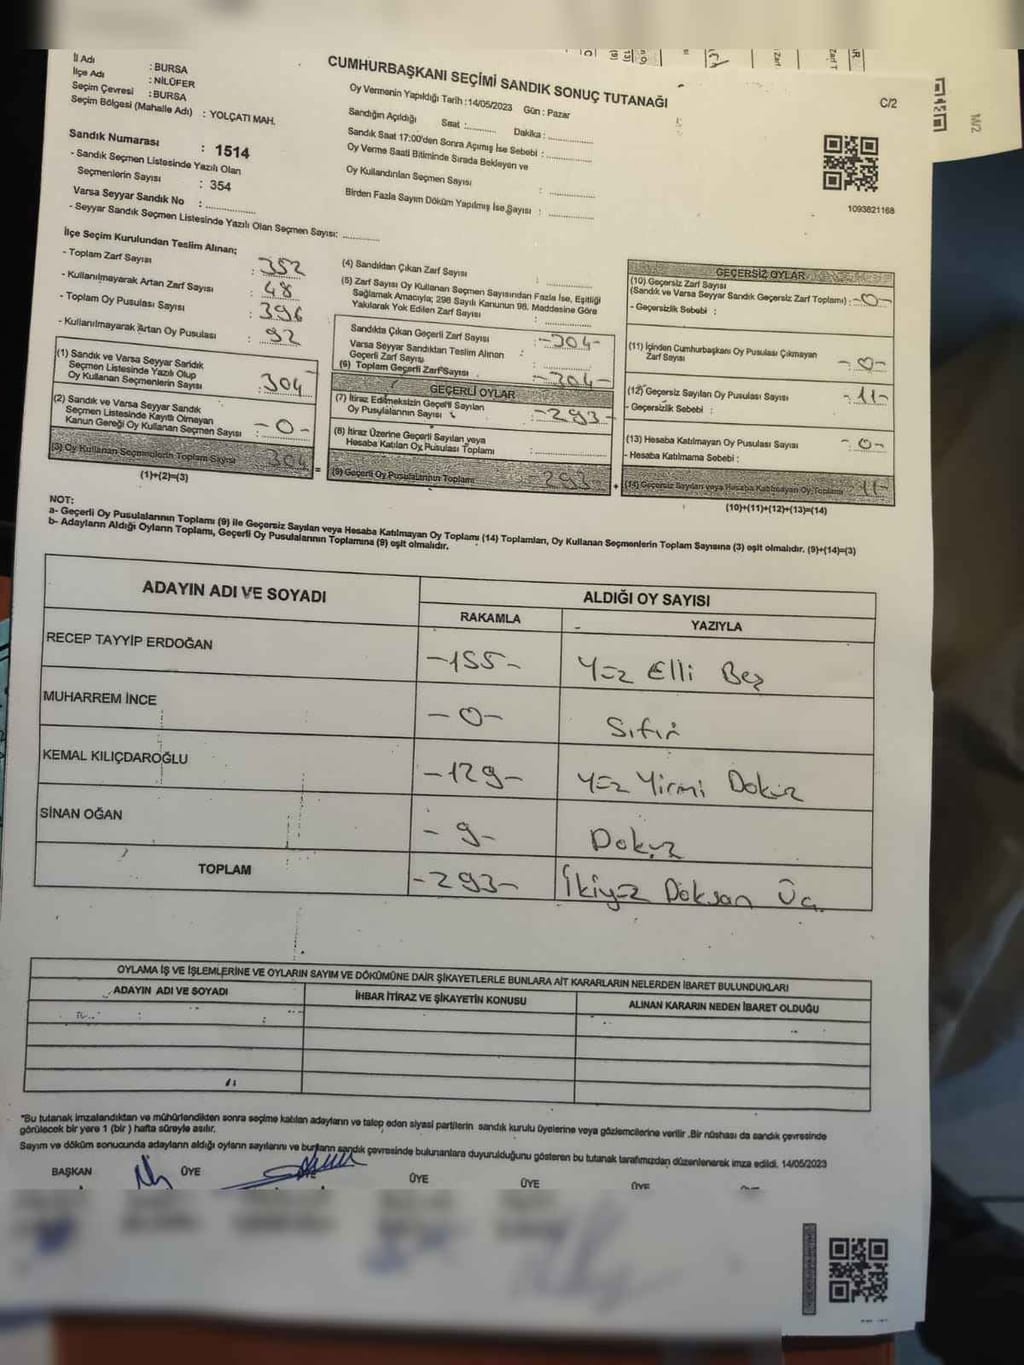 CUMHURBAŞKANI SEÇİMİ SANDIK SONUÇ TUTANAĞI
C/2
M/2
İl Adı : BURSA
İlçe Adı : NİLÜFER
Seçim Çevresi : BURSA
Seçim Bölgesi (Mahalle Adı) : YOLÇATI MAH.
Sandık Numarası : 1514
- Sandık Seçmen Listesinde Yazılı Olan
Seçmenlerin Sayısı : 354
Varsa Seyyar Sandık No : ..............
- Seyyar Sandık Seçmen Listesinde Yazılı Olan Seçmen Sayısı: ..........
Oy Vermenin Yapıldığı Tarih : 14/05/2023 Gün : Pazar
Sandığın Açıldığı Saat :......... Dakika : ............
Sandık Saat 17:00'den Sonra Açımış İse Sebebi : ............
Oy Verme Saati Bitiminde Sırada Bekleyen ve
Oy Kullandırılan Seçmen Sayısı : ............
Birden Fazla Sayım Döküm Yapılmış İse Sayısı : ............
1093821168
İlçe Seçim Kurulundan Teslim Alınan;
- Toplam Zarf Sayısı : 352
- Kullanılmayarak Artan Zarf Sayısı : 48
- Toplam Oy Pusulası Sayısı : 396
- Kullanılmayarak Artan Oy Pusulası : 92
(1) Sandık ve Varsa Seyyar Sandık
Seçmen Listesinde Yazılı Olup
Oy Kullanan Seçmenlerin Sayısı : 304
(2) Sandık ve Varsa Seyyar Sandık
Seçmen Listesinde Kayıtlı Olmayan
Kanun Gereği Oy Kullanan Seçmen Sayısı : -0-
(3) Oy Kullanan Seçmenlerin Toplam Sayısı 304
(1)+(2)=(3)
(4) Sandıktan Çıkan Zarf Sayısı : ............
(5) Zarf Sayısı Oy Kullanan Seçmen Sayısından Fazla İse, Eşitliği
Sağlamak Amacıyla; 298 Sayılı Kanunun 98. Maddesine Göre
Yakılarak Yok Edilen Zarf Sayısı : ............
Sandıkta Çıkan Geçerli Zarf Sayısı : -304-
Varsa Seyyar Sandıktan Teslim Alınan
Geçerli Zarf Sayısı :
(6) Toplam Geçerli Zarf Sayısı -304-
GEÇERLİ OYLAR
(7) İtiraz Edilmeksizin Geçerli Sayılan
Oy Pusulalarının Sayısı : -293-
(8) İtiraz Üzerine Geçerli Sayılan veya
Hesaba Katılan Oy Pusulası Toplamı : ............
(9) Geçerli Oy Pusulalarının Toplamı -293-
GEÇERSİZ OYLAR
(10) Geçersiz Zarf Sayısı
(Sandık ve Varsa Seyyar Sandık Geçersiz Zarf Toplamı) : -0-
- Geçersizlik Sebebi :
(11) İçinden Cumhurbaşkanı Oy Pusulası Çıkmayan
Zarf Sayısı -0-
(12) Geçersiz Sayılan Oy Pusulası Sayısı : -11-
- Geçersizlik Sebebi :
(13) Hesaba Katılmayan Oy Pusulası Sayısı -0-
- Hesaba Katılmama Sebebi :
(14) Geçersiz Sayılan veya Hesaba Katılmayan Oy Toplamı -11-
(10)+(11)+(12)+(13)=(14)
NOT:
a- Geçerli Oy Pusulalarının Toplamı (9) ile Geçersiz Sayılan veya Hesaba Katılmayan Oy Toplamı (14) Toplamları, Oy Kullanan Seçmenlerin Toplam Sayısına (3) eşit olmalıdır. (9)+(14)=(3)
b- Adayların Aldığı Oyların Toplamı, Geçerli Oy Pusulalarının Toplamına (9) eşit olmalıdır.
ADAYIN ADI VE SOYADI
ALDIĞI OY SAYISI
RAKAMLA YAZIYLA
RECEP TAYYİP ERDOĞAN -155- Yüz Elli Beş
MUHARREM İNCE -0- Sıfır
KEMAL KILIÇDAROĞLU -129- Yüz Yirmi Dokuz
SİNAN OĞAN -9- Dokuz
TOPLAM -293- İkiyüz Doksan Üç.
OYLAMA İŞ VE İŞLEMLERİNE VE OYLARIN SAYIM VE DÖKÜMÜNE DAİR ŞİKAYETLERLE BUNLARA AİT KARARLARIN NELERDEN İBARET BULUNDUKLARI
ADAYIN ADI VE SOYADI İHBAR İTİRAZ VE ŞİKAYETİN KONUSU ALINAN KARARIN NEDEN İBARET OLDUĞU
*Bu tutanak imzalandıktan ve mühürlendikten sonra seçime katılan adayların ve talep eden siyasi partilerin sandık kurulu üyelerine veya gözlemcilerine verilir .Bir nüshası da sandık çevresinde
görülecek bir yere 1 (bir ) hafta süreyle asılır.
Sayım ve döküm sonucunda adayların aldığı oyların sayılarını ve bunların sandık çevresinde bulunanlara duyurulduğunu gösteren bu tutanak tarafımızdan düzenlenerek imza edildi. 14/05/2023
BAŞKAN ÜYE ÜYE ÜYE ÜYE